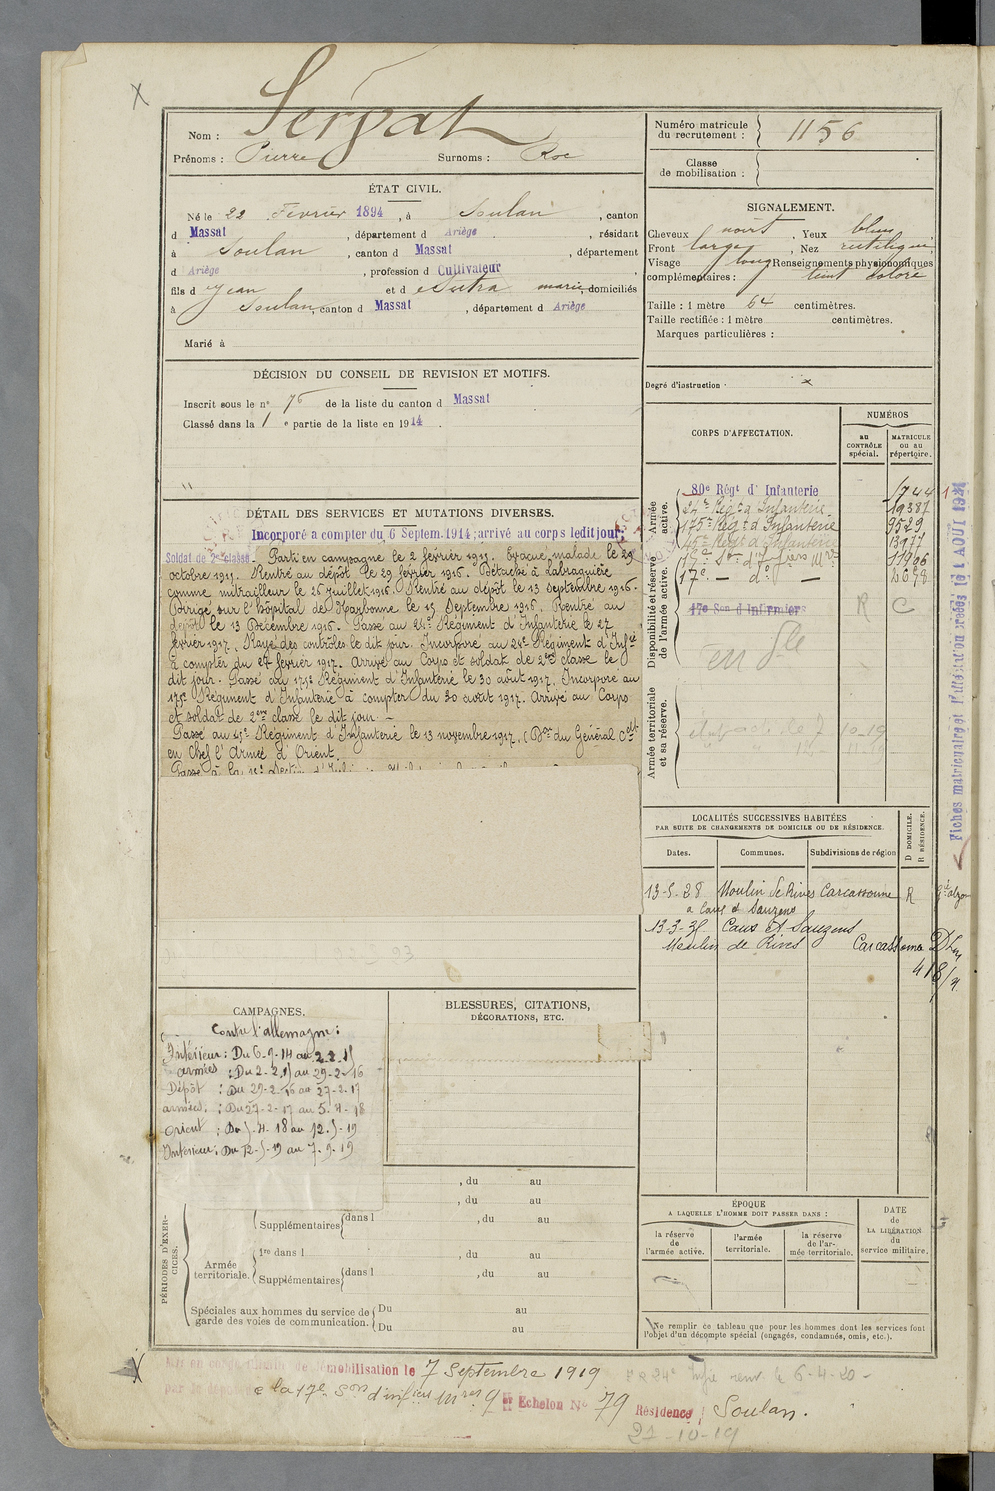 Nom : Serpat
Prénoms : Pierre Surnoms : Roc
Numéro matricule du recrutement : 1156
Classe de mobilisation :
ÉTAT CIVIL.
Né le 22 Fevrier 1894, à Soulan, canton
d Massat, département d Ariège, résidant
à Soulan, canton d Massat, département
d Ariège, profession d Cultivateur,
fils d Jean et d marie, domiciliés
à Soulan, canton d Massat, département d Ariège
Marié à
SIGNALEMENT.
Cheveux noirs, Yeux bleus
Front large, Nez rectiligne,
Visage long Renseignements physionomiques
complémentaires : teint coloré
Taille : 1 mètre 64 centimètres.
Taille rectifiée : 1 mètre centimètres.
Marques particulières :
Degré d'instruction
DÉCISION DU CONSEIL DE REVISION ET MOTIFS.
Inscrit sous le n° 76 de la liste du canton d Massat
Classé dans la 1e partie de la liste en 1914.
DÉTAIL DES SERVICES ET MUTATIONS DIVERSES.
Incorporé a compter du 6 Septem. 1914; arrivé au corps ledit jour;
Soldat de 2e classe. Parti en campagne le 2 février 1915. Evacué, malade le 29
octobre 1915. Rentré au dépôt le 29 février 1916. Détaché à
comme mitrailleur le 26 juillet 1916. Rentré au dépôt le 13 septembre 1916.
Dirigé sur l'hôpital de Narbonne le 15 Septembre 1916. Rentré au
dépôt le 13 Décembre 1916. Passé au 24e Régiment d'Infanterie le 27
février 1917. Rayé des contrôles le dit jour. Incorporé au 24e Régiment d'Infie
à compter du 27 février 1917. Arrivé au Corps et soldat de 2ème classe le
dit jour. Passé au 175e Régiment d'Infanterie le 30 août 1917. Incorporé au
175e Régiment d'Infanterie à compter du 30 août 1917. Arrivé au Corps
et soldat de 2ème classe le dit jour. –
Passé au 45e Régiment d'Infanterie le 13 novembre 1917. (Don du Général Ct
en Chef l'Armée d'Orient.
CORPS D'AFFECTATION.
NUMÉROS
au CONTRÔLE spécial.
MATRICULE ou au répertoire.
Armée active.
80e Régt d'Infanterie 1744
24e Régt d'Infanterie 19387
175e Régt d'Infanterie 9529
45e Régt d'Infanterie 13977
Disponibilité et réserve de l'armée active.
15e Son d'Infiers Mres 11906
17e — do —
17e Son d'Infirmiers R C
Armée territoriale et sa réserve.
LOCALITÉS SUCCESSIVES HABITÉES
PAR SUITE DE CHANGEMENTS DE DOMICILE OU DE RÉSIDENCE.
Dates. Communes. Subdivisions de région D DOMICILE. R RÉSIDENCE.
13-5-28 Moulin de Rives Carcassonne R
a Caux et Sauzens
13-3-31 Caux et Sauzens
Moulin de Rives Carcassonne
Fiches matricules et d'affectation créées le 1 AOUT 1921
CAMPAGNES.
Contre l'allemagne :
Intérieur : Du 6-9-14 au 2-2-15
armées : Du 2-2-15 au 29-2-16
Dépôt : Du 29-2-16 au 27-2-17
armées : Du 27-2-17 au 5-4-18
Orient : Du 5-4-18 au 12-5-19
Intérieur : Du 12-5-19 au 7-9-19
BLESSURES, CITATIONS,
DÉCORATIONS, ETC.
PÉRIODES D'EXERCICES.
, du au
, du au
Supplémentaires dans l , du au
Armée territoriale.
1re dans l , du au
Supplémentaires dans l , du au
Spéciales aux hommes du service de garde des voies de communication.
Du au
Du au
ÉPOQUE
A LAQUELLE L'HOMME DOIT PASSER DANS :
la réserve de l'armée active.
l'armée territoriale.
la réserve de l'armée territoriale.
DATE de LA LIBÉRATION du service militaire.
Ne remplir ce tableau que pour les hommes dont les services font
l'objet d'un décompte spécial (engagés, condamnés, omis, etc.).
Mis en congé illimité de démobilisation le 7 Septembre 1919
par le dépôt de la 17e Son d'infiers mres 9e Echelon No 79 Résidence Soulan.
6-4-20
27-10-19